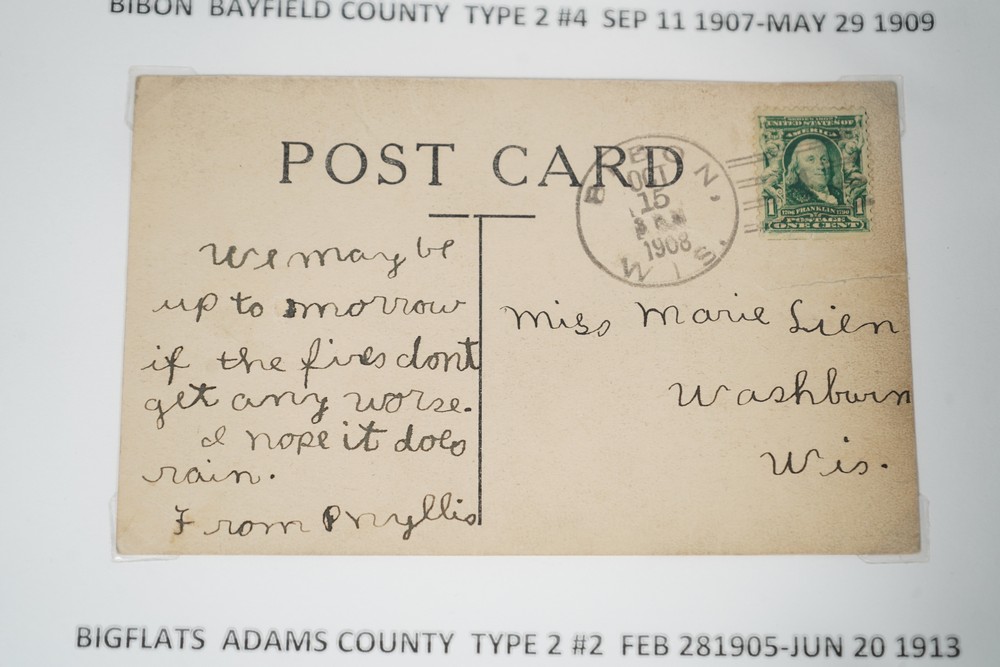 BIBON BAYFIELD COUNTY TYPE 2 #4 SEP 11 1907-MAY 29 1909
POST CARD
BIBON,
OCT
15
1908
WIS.
SERIES 1902
UNITED STATES OF
AMERICA
1 FRANKLIN 1
POSTAGE
ONE CENT
We may be
up to morrow
if the fires dont
get any worse.
I hope it does
rain.
From Phyllis
Miss Marie Lien
Washburn
Wis.
BIGFLATS ADAMS COUNTY TYPE 2 #2 FEB 281905-JUN 20 1913